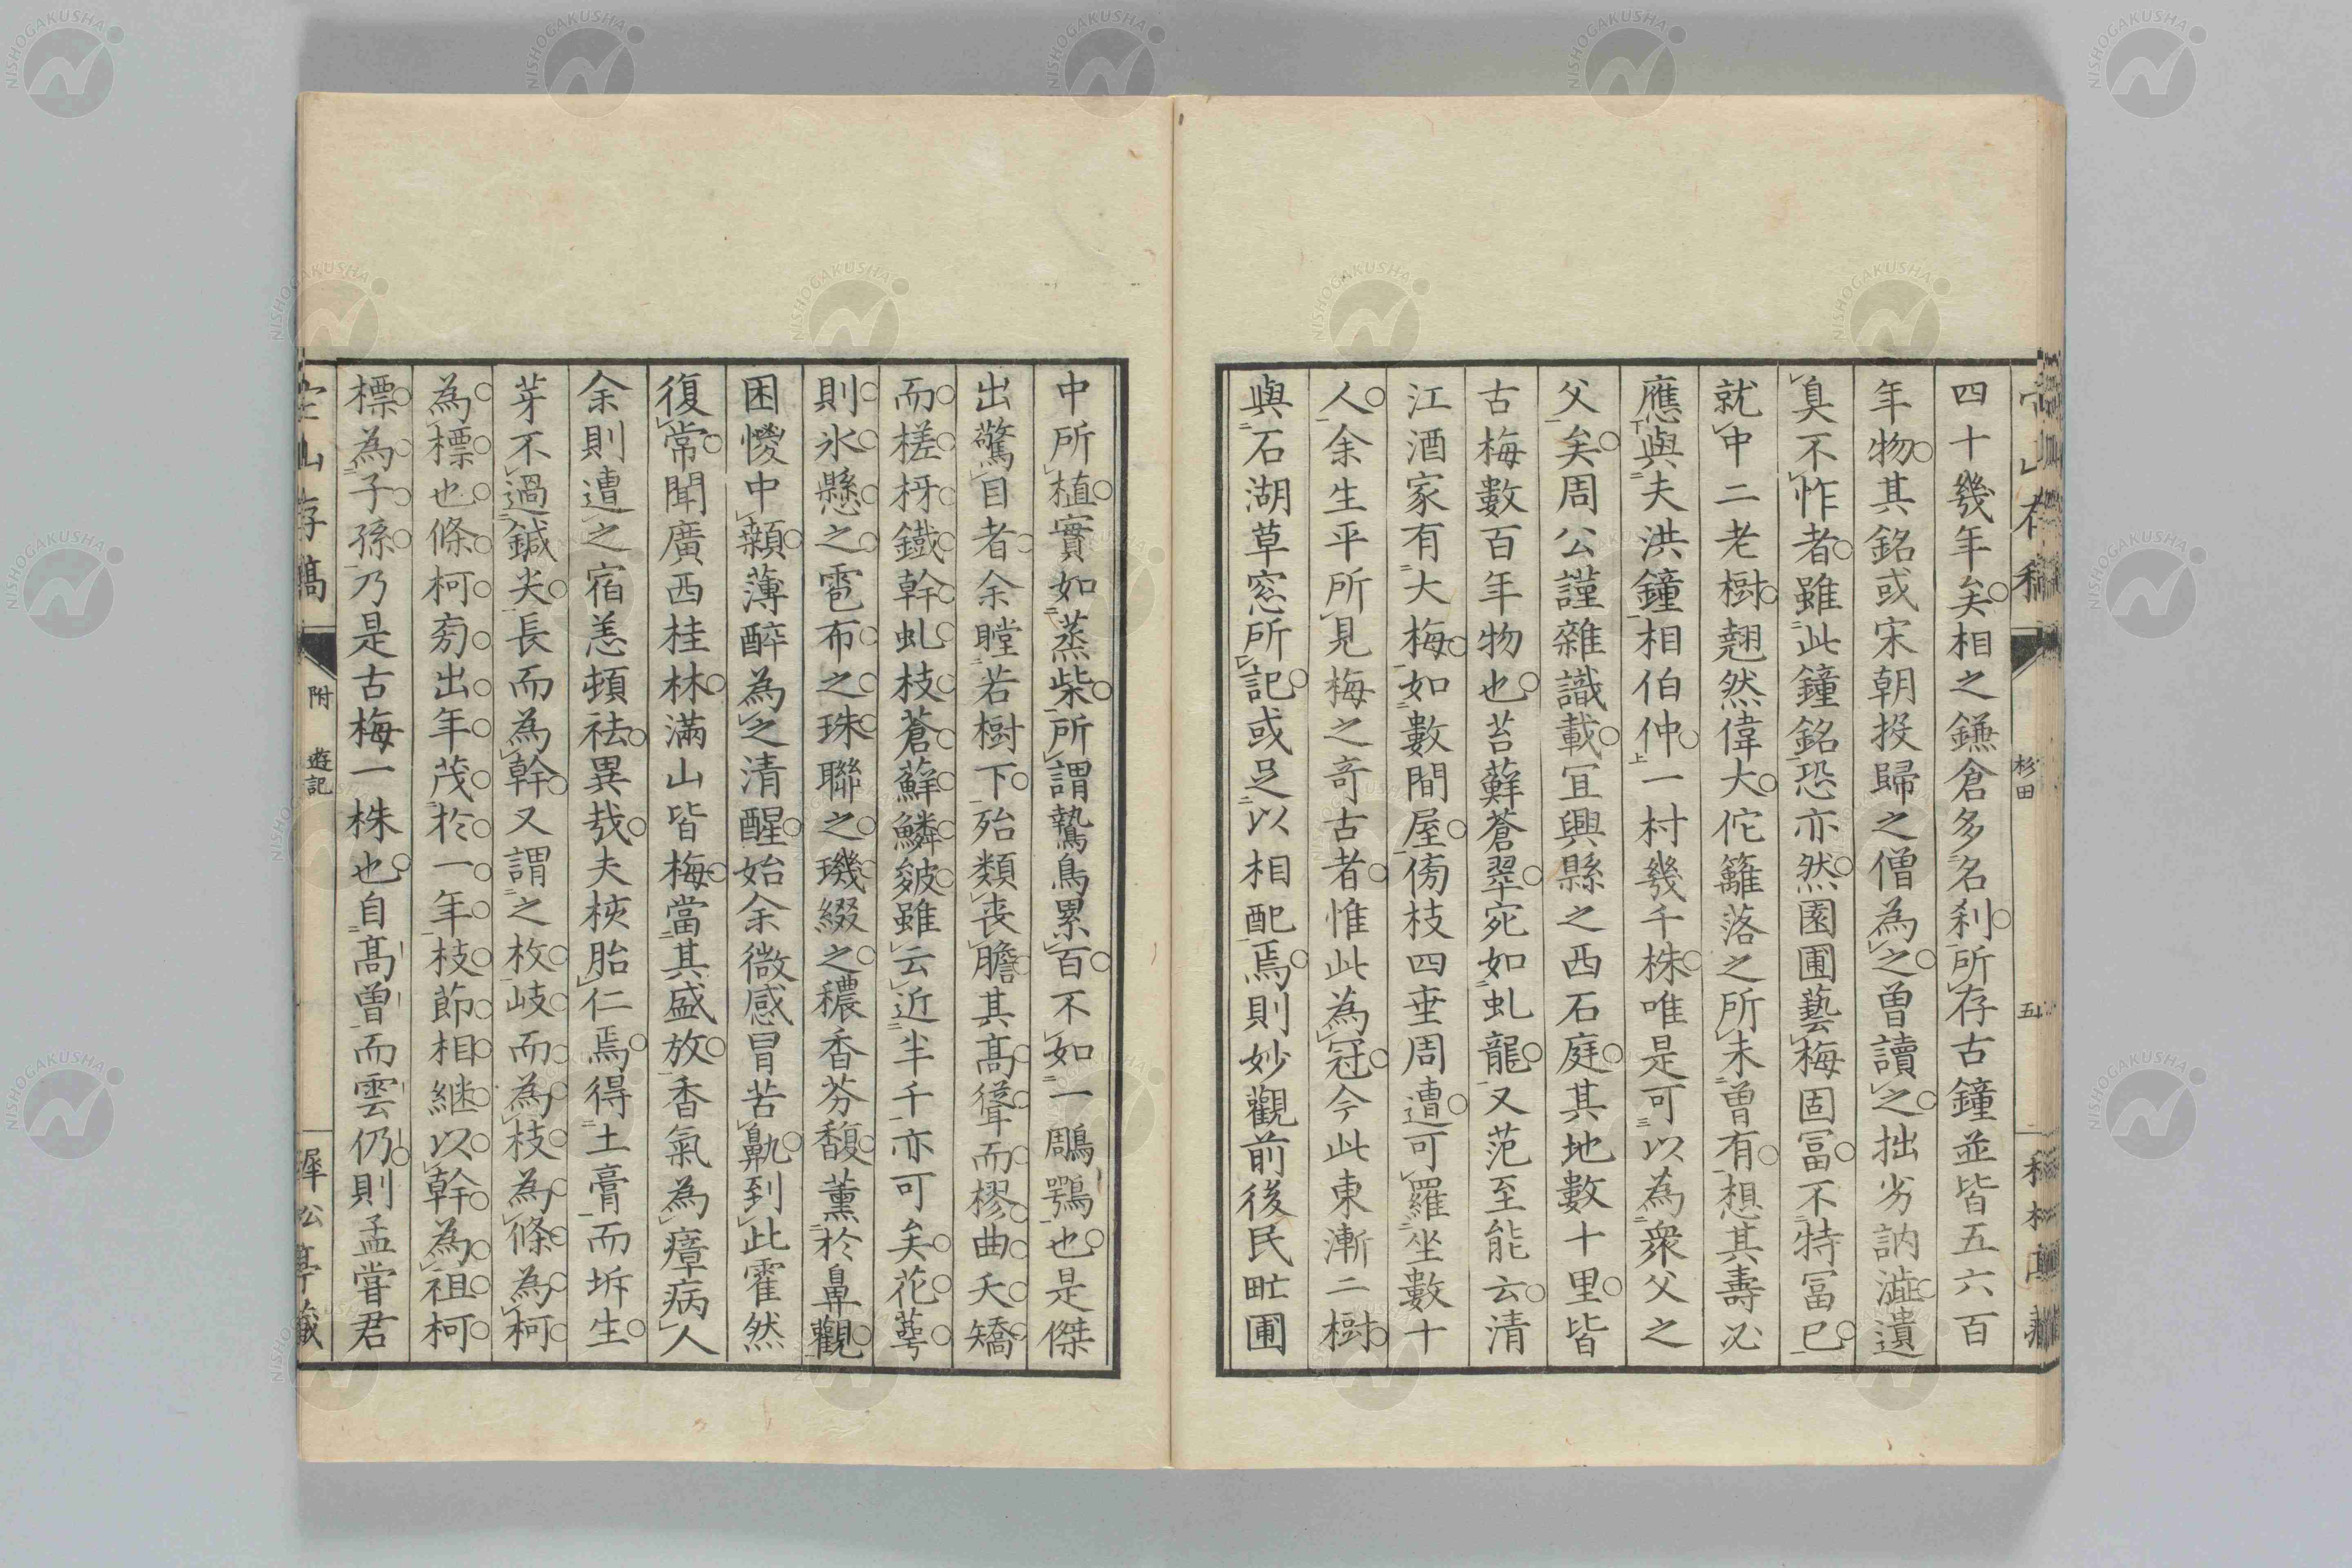 四十幾年矣相之鎌倉多名刹所存古鐘並皆五六百
年物其銘或宋朝投歸之僧為之曽讀之拙劣訥澁遺
臭不怍者雖此鐘銘恐亦然園圃藝梅固冨不特冨已
就中二老樹翹然偉大佗籬落之所未曽有想其壽必
應與夫洪鐘相伯仲一村幾千株唯是可以為衆父之
父矣周公謹雜識載冝興縣之西石庭其地數十里皆
古梅數百年物也苔蘚蒼翠宛如虬龍又范至能云清
江酒家有大梅如數間屋傍枝四垂周遭可羅坐數十
人余生平所見梅之竒古者惟此為冠今此東漸二樹
與石湖草窓所記或足以相配焉則妙觀前後民甿圃
杉田
五
中所植實如蒸柴所謂鷙鳥累百不如一鵰鶚也是傑
出驚目者余瞠若樹下殆類喪膽其髙聳而樛曲夭矯
而槎枒鐵幹虬枝蒼蘚鱗皴雖云近半千亦可矣花蕚
則氷懸之雹布之珠聯之璣綴之穠香芬馥薰於鼻觀
困憊中頼薄醉為之清醒始余微感冒苦鼽到此霍然
復常聞廣西桂林滿山皆梅當其盛放香氣為瘴病人
余則遭之宿恙頓祛異哉夫核胎仁焉得土膏而坼生
芽不過鍼尖長而為幹又謂之枚岐而為枝為條為柯
為標也條柯旁出年茂於一年枝節相継以幹為祖柯
標為子孫乃是古梅一株也自髙曽而雲仍則孟嘗君
附
遊記